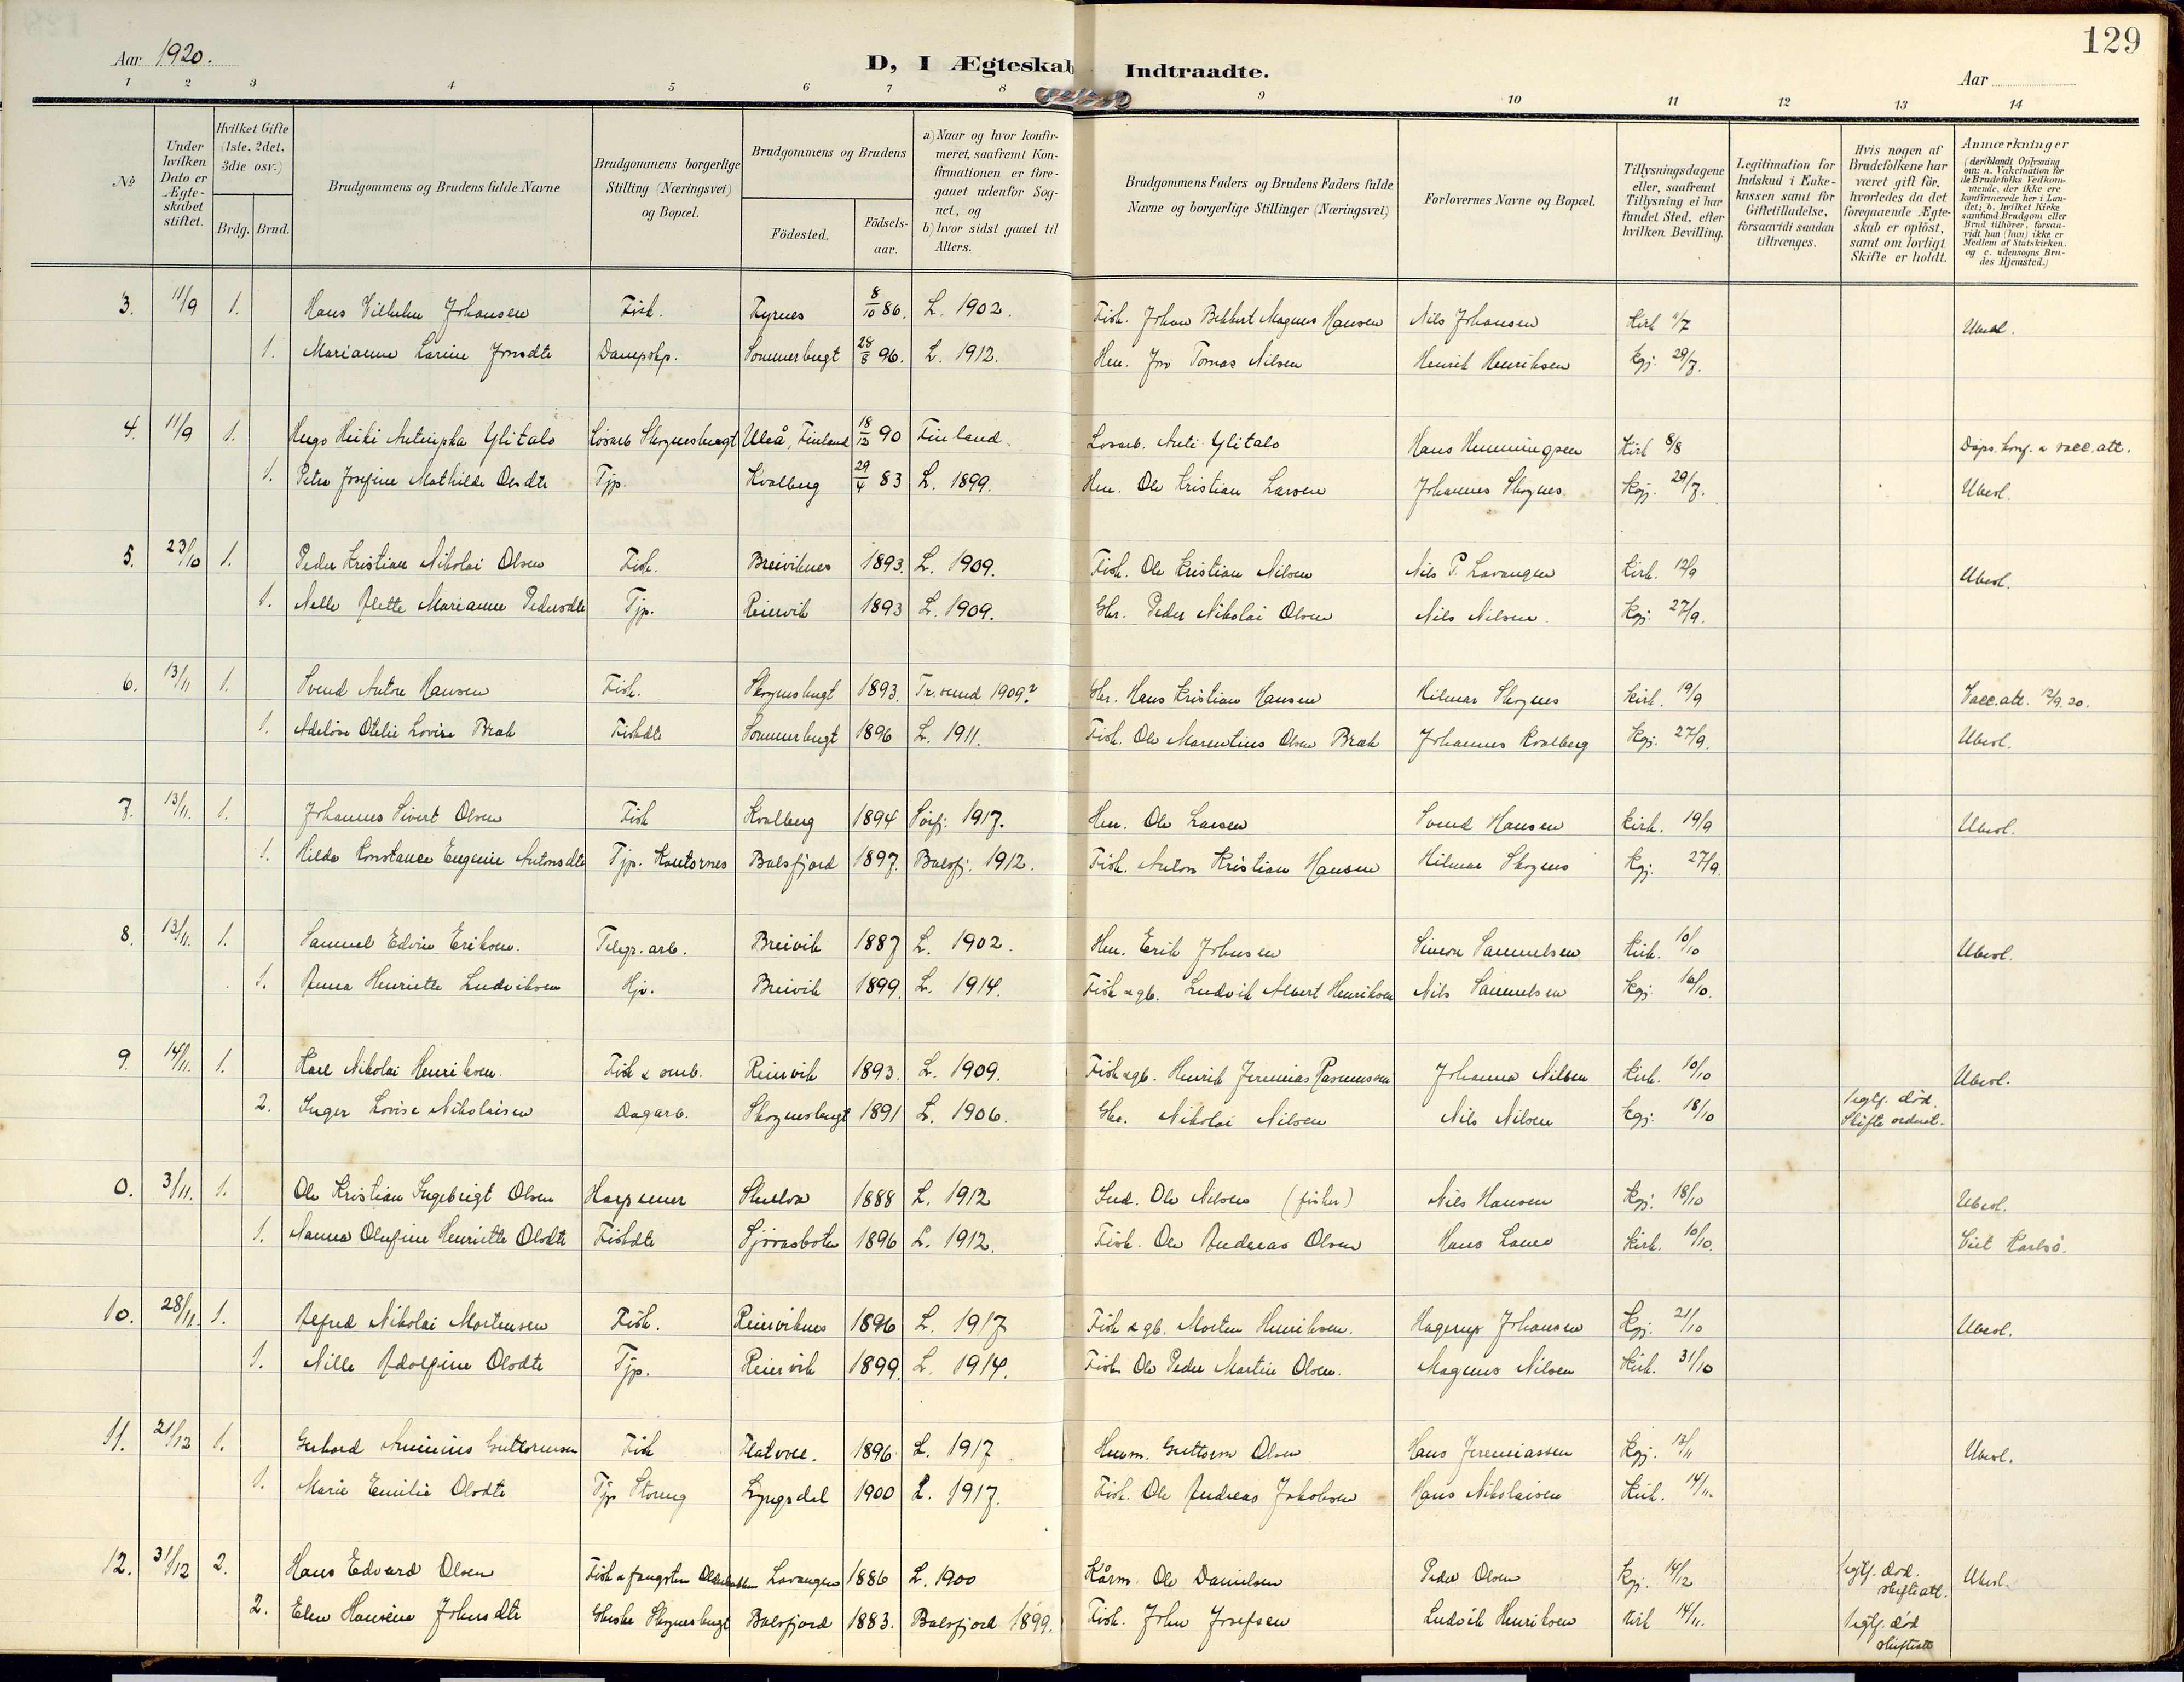 129
Aar 1920.
D, I Ægteskab Indtraadte.
Aar
1 2 3 4 5 6 7 8 9 10 11 12 13 14
No
Under hvilken Dato er Ægteskabet stiftet.
Hvilket Gifte (1ste, 2det, 3die osv.)
Brdg. Brud.
Brudgommens og Brudens fulde Navne
Brudgommens borgerlige Stilling (Næringsvei) og Bopæl.
Brudgommens og Brudens
Födested.
Födsels-aar.
a) Naar og hvor konfirmeret, saafremt Konfirmationen er foregaaet udenfor Sognet, og
b) hvor sidst gaaet til Alters.
Brudgommens Faders og Brudens Faders fulde Navne og borgerlige Stillinger (Næringsvei)
Forlovernes Navne og Bopæl.
Tillysningsdagene eller, saafremt Tillysning ei har fundet Sted, efter hvilken Bevilling.
Legitimation for Indskud i Enkekassen samt for Giftetilladelse, forsaavidt saadan tiltrænges.
Hvis nogen af Brudefolkene har været gift för, hvorledes da det foregaaende Ægteskab er oplöst, samt om lovligt Skifte er holdt.
Anmærkninger
(deriblandt Oplysning om: a. Vakcination for de Brudefolks Vedkommende, der ikke ere konfirmerede her i Landet; b. hvilket Kirkesamfund Brudgom eller Brud tilhörer, forsaavidt han (hun) ikke er Medlem af Statskirken. og c. udensogns Brudes Hjemsted.)
3. 11/9 1. Hans Vilhelm Johansen Fisk. Tyrnes 8/10 86. L. 1902. Fisk. Johan Magnus Hansen Nils Johansen Kirk 11/7 Ubesl.
1. Marianne Larine Jonsdtr Sommerbugt 28/8 96. L. 1912. Hm. Jon Tomas Nilsen Henrik Henriksen Kgj. 29/7.
4. 11/9 1. Hugo Heiki Ylitalo Løsarb Skognesbugt Uleå, Finland 18/12 90 Finland. Løsarb. Anti Ylitalo Hans Henningsen Kirk 8/8 Daps. konf. & vacc. att.
1. Petra Josefine Mathilde Olsdtr Tjp. Kvalberg 29/4 83 L. 1899. Hm. Ole Kristian Larsen Johannes Skognes Kgj. 29/7. Ubesl.
5. 23/10 1. Peder Kristian Nikolai Olsen Fisk. Breiviknes 1893. L. 1909. Fisk. Ole Kristian Nilsen Nils P. Lavangen Kirk. 12/9 Ubesl.
1. Nelle Alette Marianne Pedersdtr Tjp. Reiervik 1893 L. 1909. Gbr. Peder Nikolai Olsen Nils Nilsen. Kgj. 27/9.
6. 13/11 1. Svend Anton Hansen Fisk. Skognesbugt 1893. Tr. sund 1909? Gbr. Hans Kristian Hansen Hilmar Skognes Kirk. 19/9 Vacc. att. 12/9. 20.
1. Adeline Otelie Lovise Bræk Fiskdtr Sommerbugt 1896 L. 1911. Fisk. Ole Marentius Olsen Bræk Johannes Kvalberg Kgj. 27/9. Ubesl.
7. 13/11. 1. Johannes Sivert Olsen Fisk Kvalberg 1894 Sörfj. 1917. Hm. Ole Larsen Svend Hansen Kirk. 19/9 Ubesl.
1. Hilda Konstance Eugenie Antonsdtr Tjp. Kantornes Balsfjord 1897. Balsfj. 1912. Fisk. Anton Kristian Hansen Hilmar Skognes Kgj. 27/9.
8. 13/11. 1. Samuel Edvin Eriksen. Telegr. arb. Breivik 1887 L. 1902. Hm. Erik Johnsen Simon Samuelsen Kirk. 10/10 Ubesl.
1. Anna Henriette Ludviksen Hjv. Breivik 1899. L. 1914. Fisk & gb. Ludvik Albert Henriksen Nils Samuelsen Kgj. 16/10.
9. 14/11. 1. Karl Nikolai Henriksen. Fisk & smb. Reiervik 1893. L. 1909. Fisk & gb. Henrik Jeremias Rasmussen Johanna Nilsen Kirk. 10/10 Ubesl.
2. Inger Lovise Nikolaisen Dagarb. Skognesbugt 1891 L. 1906. Gbr. Nikolai Nilsen Nils Nilsen Kgj. 18/10 død. Skifte ordnet.
0. 3/11. 1. Ole Kristian Ingebrigt Olsen Harpuner 1888 L. 1912 Ole Nilsen (fisker) Nils Hansen Kgj. 18/10 Ubesl.
1. Nanna Olufine Henriette Olsdtr Fiskdtr Sjövasbotn 1896 L. 1912. Fisk. Ole Andreas Olsen Hans Kirk. 10/10. Viet Karlsö.
10. 28/11. 1. Alfred Nikolai Mortensen Fisk. Reierviknes 1896 L. 1917 Fisk & gb. Morten Henriksen. Hagerup Johansen Kgj. 21/10 Ubesl.
1. Nille Adolfine Olsdtr Tjp. Reiervik 1899. L. 1914. Fisk. Ole Peder Martin Olsen. Magnus Nilsen Kirk. 31/10
11. 21/12 1. Gerhard Guttormsen Fisk 1896. L. 1917 Guttorm Olsen Hans Jeremiassen Kgj. 13/11 Ubesl.
1. Marie Emilie Olsdtr Tjp Storeng Lyngsdal 1900 L. 1917. Fisk. Ole Andreas Jakobsen Hans Nikolaisen Kirk. 14/11.
12. 31/12 2. Hans Edvard Olsen Fisk & fangstm Lavangen 1886 L. 1900 Kårm. Ole Danielsen Peder Olsen Kgj. 14/12 død. skifteatt. Ubesl.
2. Elen Hansine Johnsdtr Skognesbugt Balsfjord 1883. Balsfjord 1899. Fisk. John Josefsen Ludvik Henriksen Kirk 14/11. død skifteatt